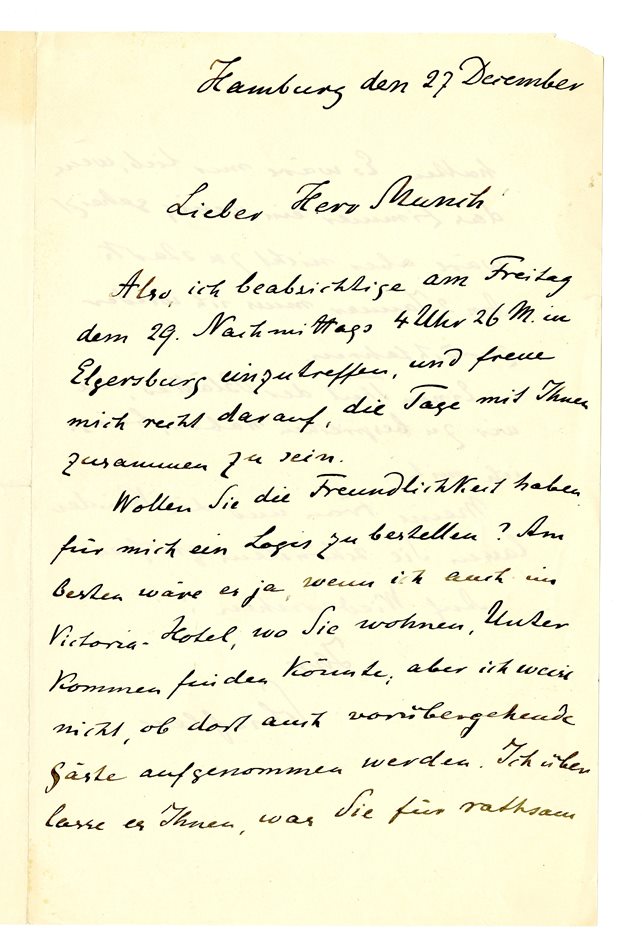 Hamburg den 27 December
Lieber Herr Munch
Also, ich beabsichtige am Freitag
dem 29. Nachmittags 4 Uhr 26 M. in
Elgersburg einzutreffen, und freue
mich recht darauf, die Tage mit Ihnen
zusammen zu sein.
Wollen Sie die Freundlichkeit haben
für mich ein Logis zu bestellen? Am
Besten wäre es ja, wenn ich auch im
Victoria-Hotel, wo Sie wohnen, Unter
kommen finden könnte, aber ich weiss
nicht, ob dort auch vorübergehende
Gäste aufgenommen werden. Ich über
lasse es Ihnen, was Sie für rathsam